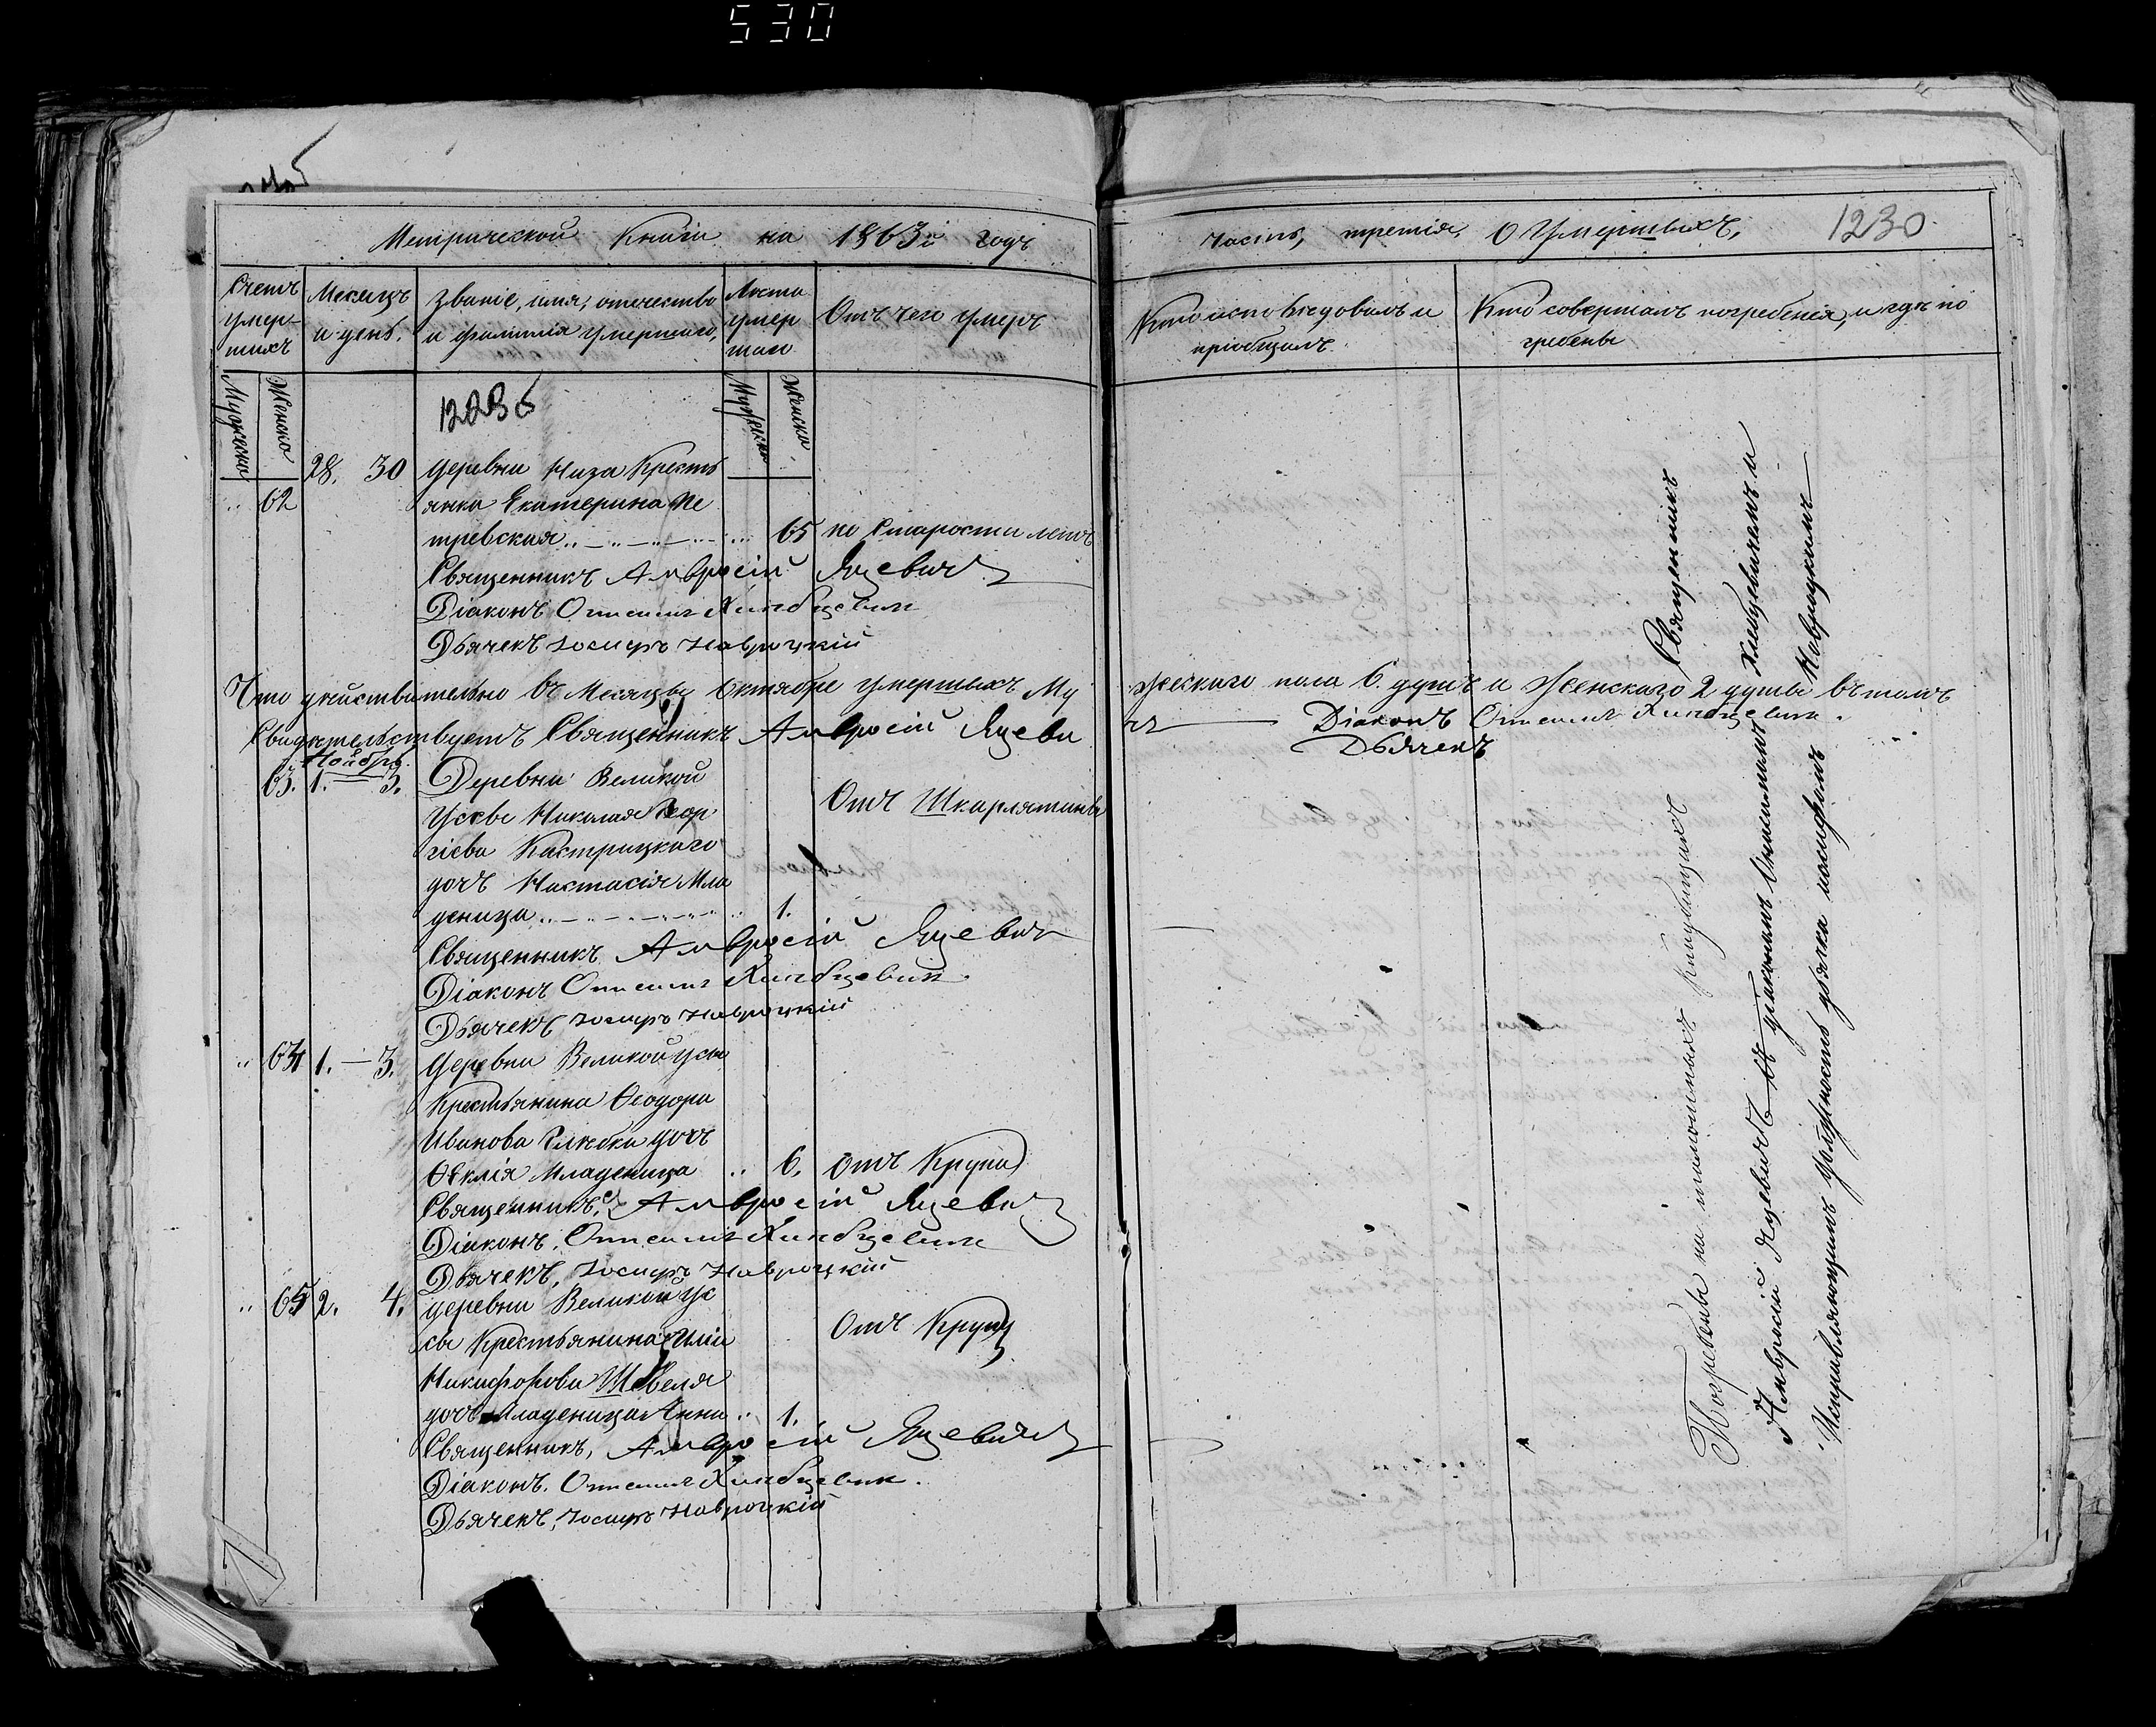 530
Метрической Книги на 1863й годъ
часть, третія, О Умершихъ, 1230
Счетъ умер-
шихъ
Месяцъ
и день.
Званіе, имя, отечество
и фамилія умершаго,
Лета
умер
шаго
Отъ чего умеръ
Кто исповедовалъ и
пріобщалъ
Кто совершалъ погребенія, и где по
гребены
Мужеска
Женска
Мужеска
Женска
28. 30 деревни Низа Кресть
" 62 янка Екатерина Пе
тревская 65 по Старости летъ
Священникъ Амвросій Яцевичъ
Діаконъ Онисимъ Хлебцевичъ
Дьячекъ Іосифъ Навроцкій
Что действительно въ Месяцы Октябре умершихъ Му
жескаго пола 6. душъ и Женскаго 2 души въ томъ
Свидетельствуетъ Священникъ Амвросій Яцеви
чъ Діаконъ Онисимъ Хлебцевичъ.
Дьячекъ
Ноябрь
63. 1. — 3. Деревни Великой
Усвы Николая Геор
гіева Кастрицкаго
дочь Настасія Мла
деница 1.
Отъ Шкарлятины
Священникъ Амвросій Яцевичъ
Діаконъ Онисимъ Хлебцевичъ.
Дьячекъ Іосифъ Навроцкій
" 64 1. — 3. деревни Великой Усы
Крестьянина Ѳеодора
Иванова дочь
Ѳеклія Младеница " 6. Отъ Крупа
Священникъ, Амвросій Яцевичъ
Діаконъ. Онисимъ Хлебцевичъ
Дьячекъ, Іосифъ Навроцкій
" 65 2. 4. деревни Великой Ус
сы Крестьянина Иліи
Никифорова Шевеля
дочь Младеница Анна " 1.
Отъ Крупа
Священникъ, Амвросій Яцевичъ
Діаконъ. Онисимъ Хлебцевичъ.
Дьячекъ, Іосифъ Навроцкій
Погребены на Священникъ
Амвросій Яцевичъ съ діакономъ Онисимомъ Хлебцевичемъ и
Исправляющимъ должность дьячка Іосифомъ Навроцкимъ